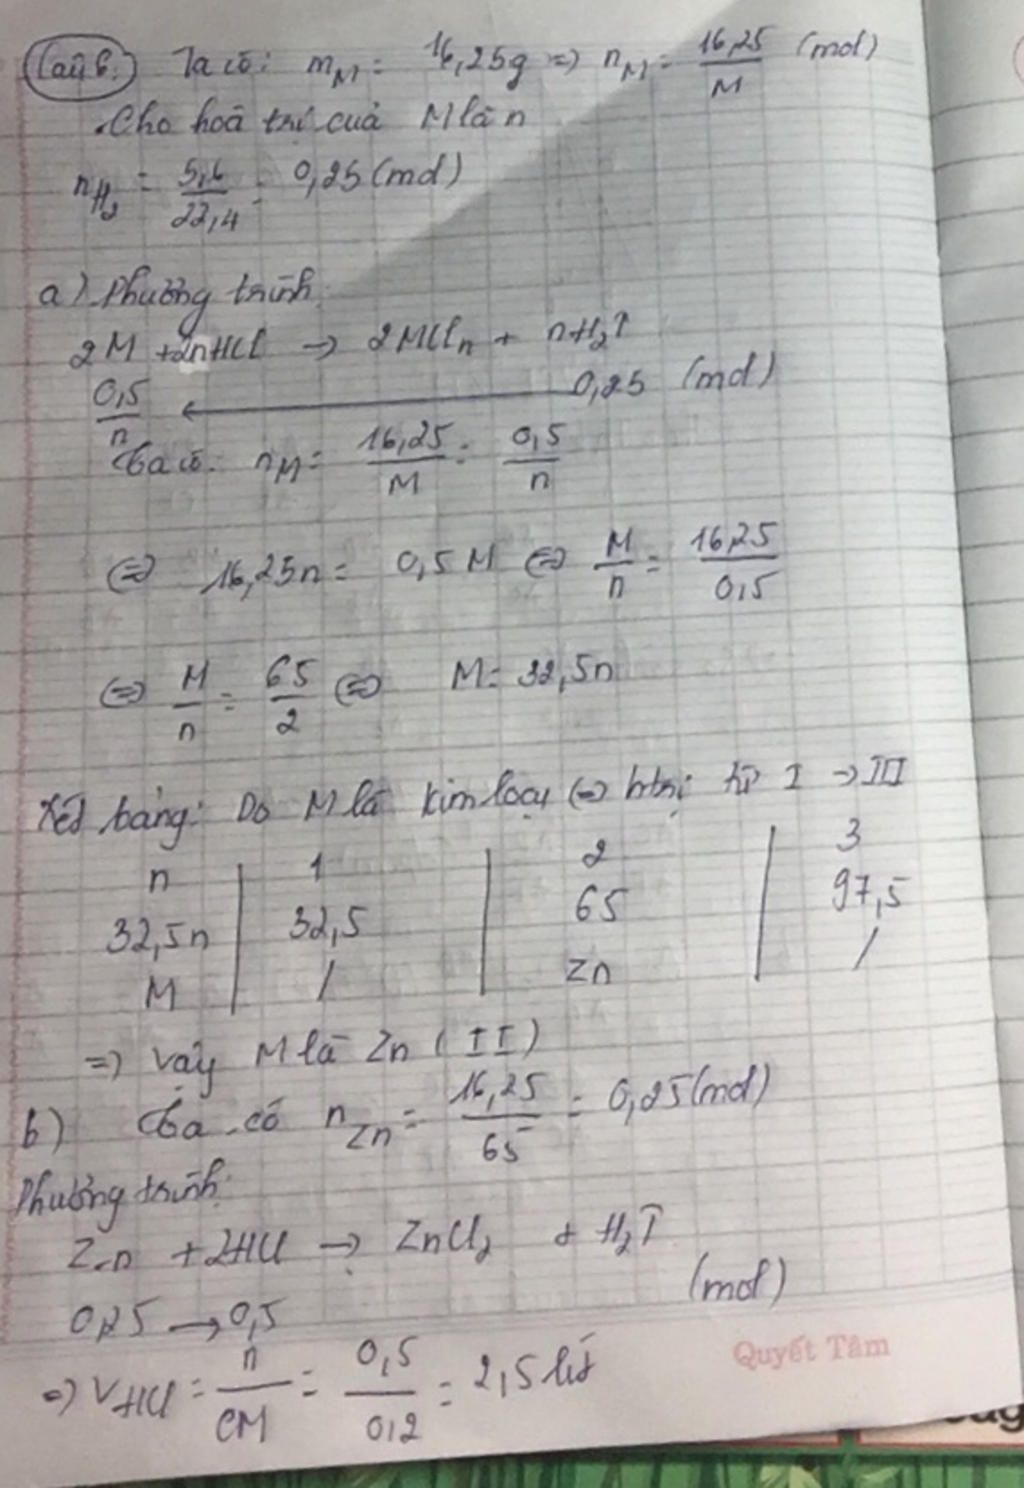 Câu 6: Ta có: mM = 16,25g => nM = 16,25/M (mol)
Cho hoá trị của M là n
nH2 = 5,6/22,4 = 0,25 (mol)
a) Phương trình:
2M + 2nHCl → 2MCln + nH2↑
0,5/n ← 0,25 (mol)
Ta có: nM = 16,25/M = 0,5/n
<=> 16,25n = 0,5M <=> M/n = 16,25/0,5
<=> M/n = 65/2 <=> M = 32,5n
Xét bảng: Do M là kim loại <=> htrị từ I → III
n | 1 | 2 | 3
32,5n | 32,5 | 65 | 97,5
M | / | Zn | /
=> Vậy M là Zn (II)
b) Ta có nZn = 16,25/65 = 0,25 (mol)
Phương trình:
Zn + 2HCl → ZnCl2 + H2↑
0,25 → 0,5 (mol)
=> VHCl = n/CM = 0,5/0,2 = 2,5 lít
Quyết Tâm